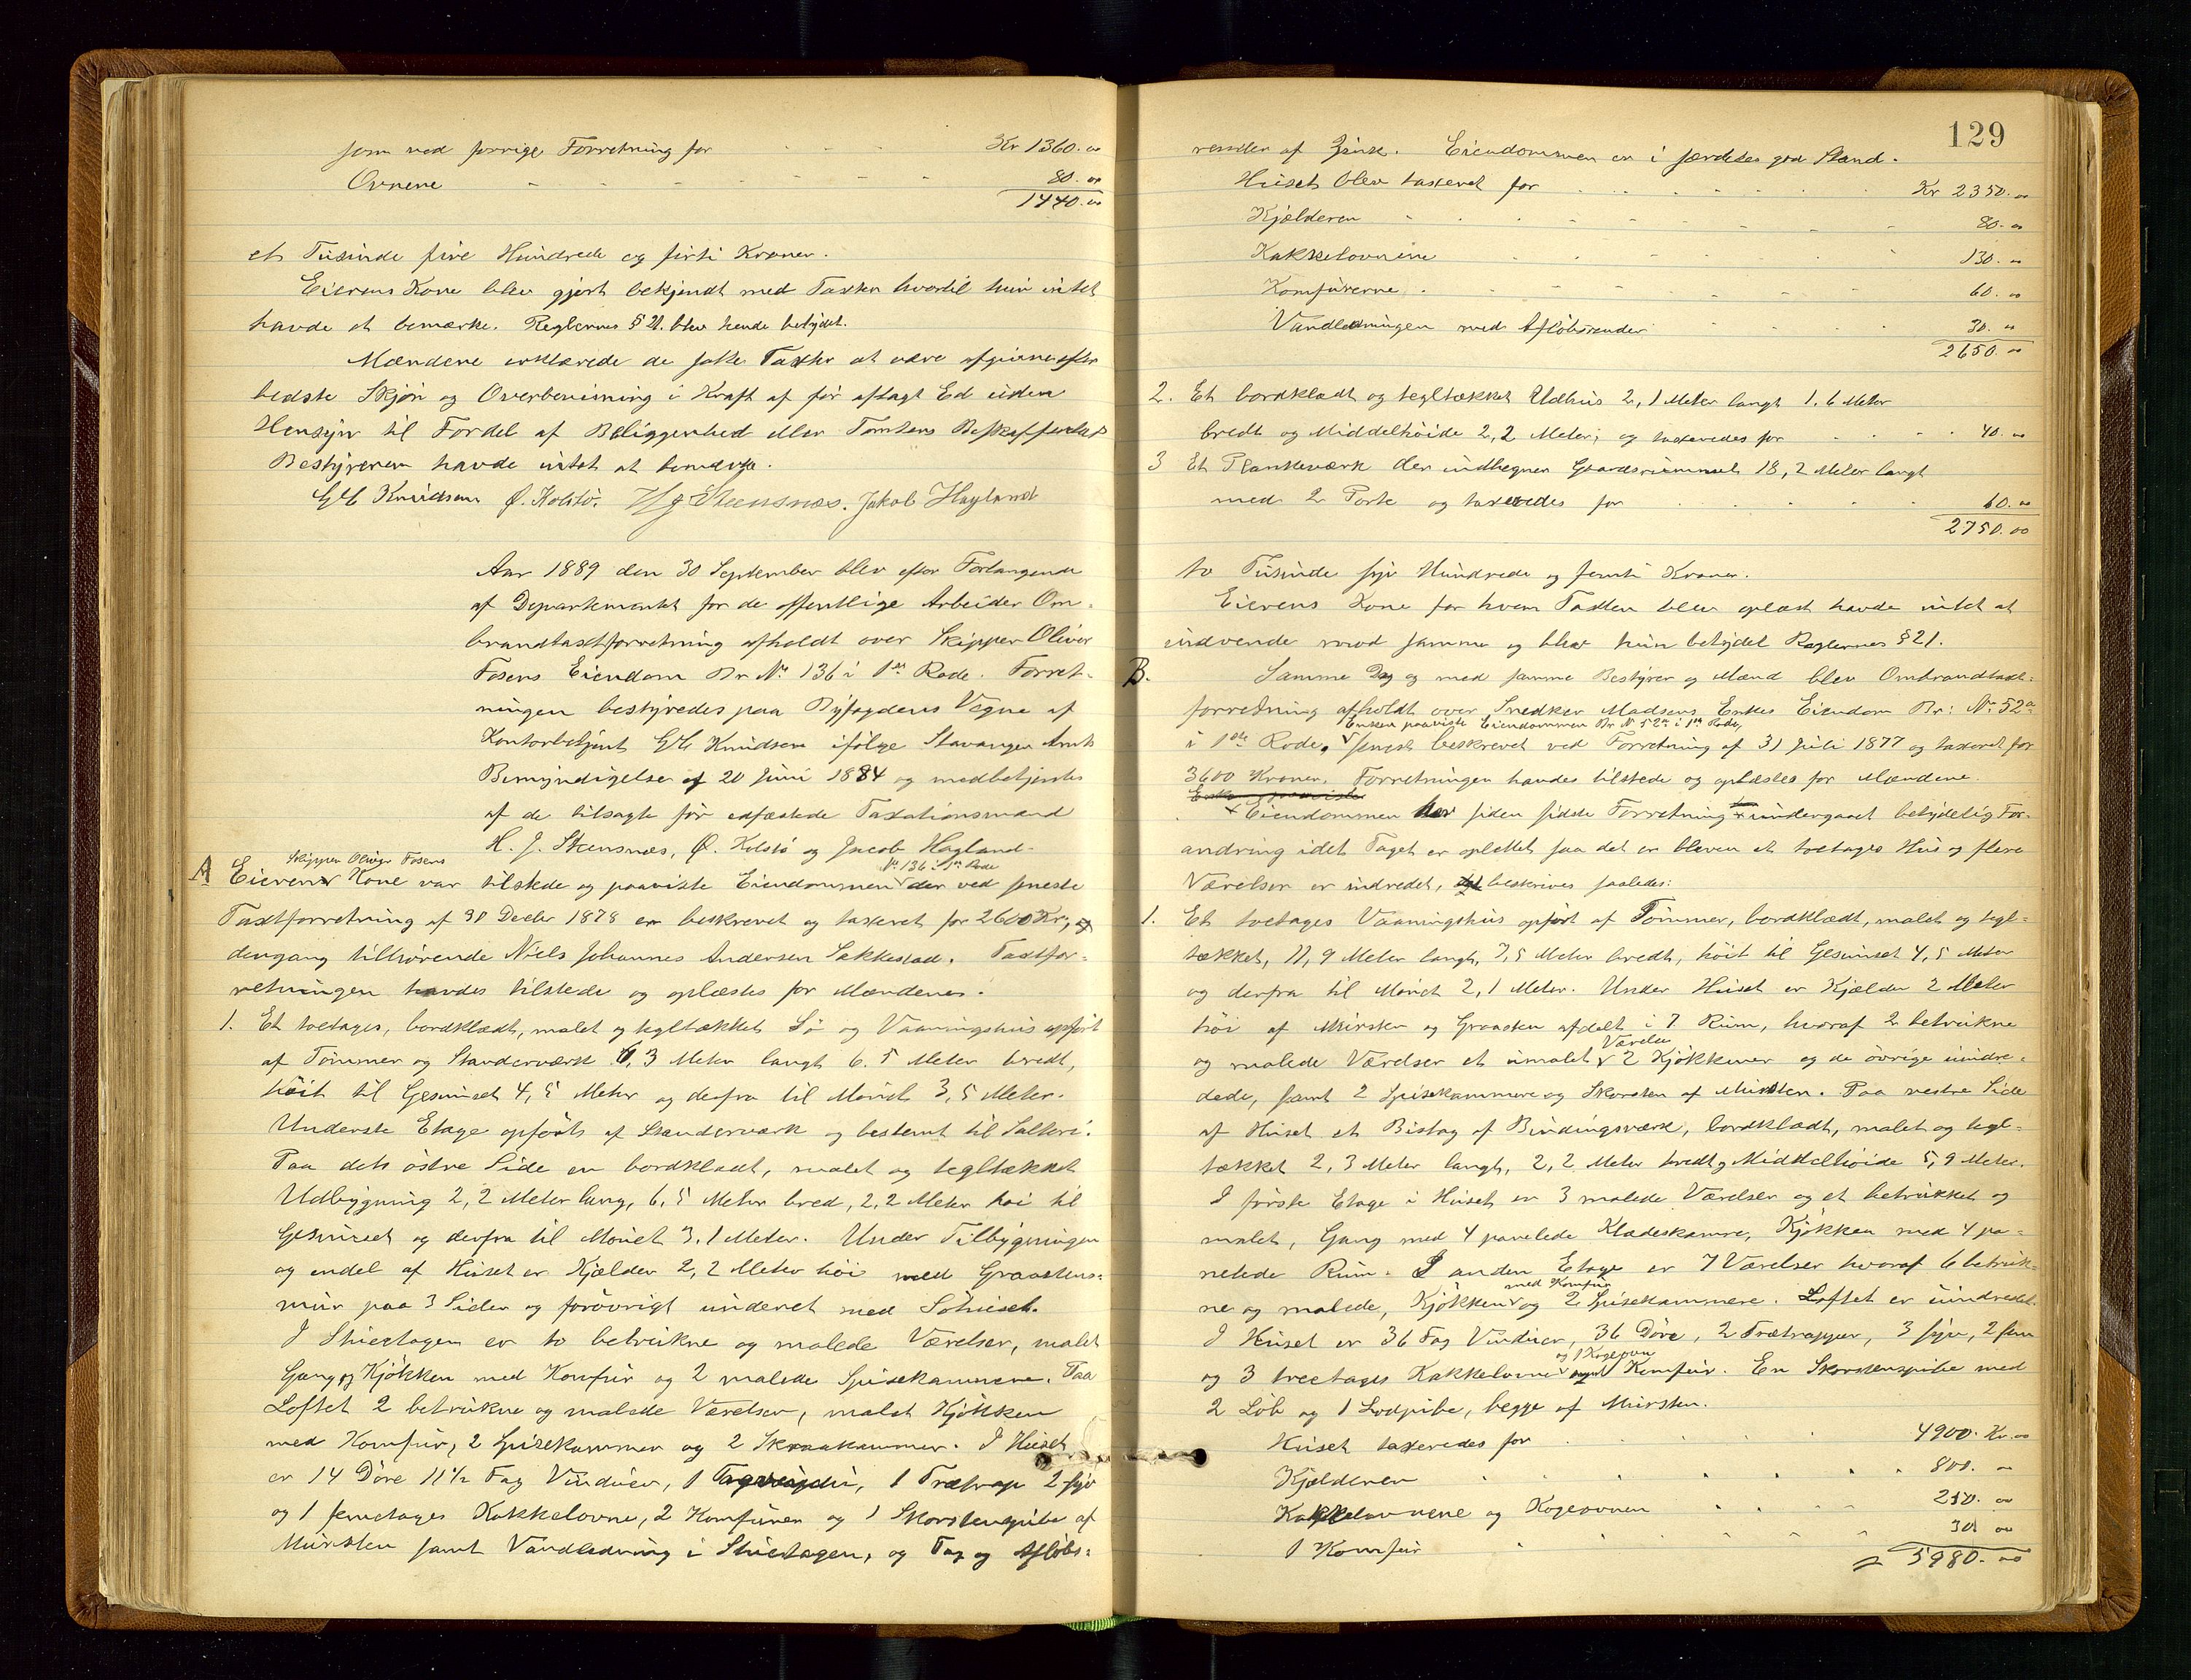 som ved forrige Forretning for - - - Kr 1360.00
Ovnene - - - - - - - 80.00
1440.00
et Tusinde fire Hundrede og firti Kroner.
Eierens Kone blev gjort bekjendt med Taxten hvortil hun intet
havde at bemærke. Reglernes § 21. blev hende betydet.
Mændene erklærede de satte Taxter at være afgivne efter
bedste Skjøn og Overbevisning i Kraft af før aflagt Ed uden
Hensyn til Fordel af Beliggenhed eller Tomtens Beskaffenhed
Bestyreren havde intet at bemærke.
Knudsen Ø. Kolstø. H J Steensnæs. Jakob Hagland
Aar 1889 den 30 September blev efter Forlangende
af Departementet for de offentlige Arbeider Om-
brandtaxtforretning afholdt over Skipper Oliver
Fosens Eiendom Br No 136 i 1ste Rode. Forret-
ningen bestyredes paa Byfogdens Vegne af
Kontorbetjent Knudsen ifølge Stavanger Amts
Bemyndigelse af 20 Juni 1884 og medbetjentes
af de tilsagte før edfæstede Taxationsmænd
H. J. Steensnæs, Ø. Kolstø og Jacob Hagland.
Skipper Oliver Fosens
No 136 i 1ste Rode
A Eierens Kone var tilstede og paaviste Eiendommen der ved sneste
Taxtforretning af 30 Decbr 1878 er beskrevet og taxeret for 2600 Kr, og
dengang tilhørende Niels Johannes Andersen Sakkestad. Taxtfor-
retningen havdes tilstede og oplæstes for Mændene.
1. Et toetages, bordklædt, malet og tegltækket Sø og Vaaningshus opført
af Tømmer og Standerværk 6,3 Meter langt 6.5 Meter bredt,
høit til Gesimset 4,5 Meter og derfra til Mønet 3,5 Meter.
Underste Etage opført af Standerværk og bestemt til Salteri.
Paa dets østre Side en bordklædt, malet og tegltækket
Udbygning 2,2 Meter lang, 6,5 Meter bred, 2,2 Meter høi til
Gesimset og derfra til Mønet 3,1 Meter. Under Tilbygningen
og endel af Huset er Kjælder 2,2 Meter høi med Graastens-
mur paa 3 Sider og forøvrigt underet med Søhuset.
I Stuetagen er to betrukne og malede Værelser, malet
Gang og Kjøkken med Komfur og 2 malede Spisekammere. Paa
Loftet 2 betrukne og malede Værelser, malet Kjøkken
med Komfur, 2 Spisekammer og 2 Skraakammer. I Huset
er 14 Døre 11½ Fag Vinduer, 1 Tagvindu, 1 Trætrap 2 syv
og 1 femetages Kakkelovne, 2 Komfurer og 1 Skorstenspibe af
Mursten samt Vandledning i Stuetagen, og Tag og Afløbs-
129
render af Zink. Eiendommen er i særdeles god Stand.
Huset blev taxeret for - - - Kr 2350.00
Kjælderen - - - 80.00
Kakkelovnene - - - 130.00
Komfurerne - - - 60.00
Vandledningen med Afløbsrender - - - 30.00
2650.00
2. Et bordklædt og tegltækket Udhus 2,1 Meter langt 1.6 Meter
bredt og Middelhøide 2,2 Meter; og taxeredes for - - - 40.00
3 Et Plankeværk der indhegner Gaardsrummet 18,2 Meter langt
med 2 Porte og taxeredes for - - - 60.00
2750.00
to Tusinde syv Hundrede og femti Kroner.
Eierens Kone for hvem Taxten blev oplæst havde intet at
indvende mod samme og blev hun betydet Reglernes § 21.
B. Samme Dag og med samme Bestyrer og Mænd blev Ombrandtaxt-
forretning afholdt over Snedker Madsens Enkes Eiendom Br: No 52a
Enken paaviste Eiendommen Br No 52a i 1ste Rode,
i 1ste Rode, senest beskrevet ved Forretning af 31 Juli 1877 og taxeret for
3600 Kroner. Forretningen havdes tilstede og oplæstes for Mændene.
Enken paaviste
Eiendommen har siden sidste Forretning undergaaet betydelig For-
andring idet Taget er opløftet saa det er bleven et toetages Hus og flere
Værelser er indredet, beskrives saaledes:
1. Et toetages Vaaningshus opført af Tømmer, bordklædt, malet og tegl-
tækket, 11,9 Meter langt, 7,5 Meter bredt, høit til Gesimset 4,5 Meter
og derfra til Mønet 2,1 Meter. Under Huset er Kjælder 2 Meter
høi af Mursten og Graasten afdelt i 7 Rum, hvoraf 2 betrukne
Værelse
og malede Værelser et umalet 2 Kjøkkener og de øvrige uindre-
dede, samt 2 Spisekammere og Skorsten af Mursten. Paa vestre Side
af Huset et Bislag af Bindingsværk, bordklædt, malet og tegl-
tækket 2,3 Meter langt, 2,2 Meter bredt og Middelhøide 5,9 Meter.
I første Etage i Huset er 3 malede Værelser og et betrukket og
malet, Gang med 4 panelede Klædeskamre, Kjøkken med 4 pa-
nelede Rum. I anden Etage er 7 Værelser hvoraf 6 betruk-
med Komfur
ne og malede, Kjøkken og 2 Spisekammere. Loftet er uindredet.
I Huset er 36 Fag Vinduer, 36 Døre, 2 Trætrapper, 3 syv, 2 fem
og 1 Kogeovn
og 3 treetages Kakkelovne Komfur. En Skorstenspibe med
2 Løb og 1 Lodpibe, begge af Mursten.
Huset taxeredes for - - - 4900. Kr.00
Kjælderen - - - 800. 00
Kakkelovnene og Kogeovnen - - - 250. 00
1 Komfur - - - 30 00
5980.00